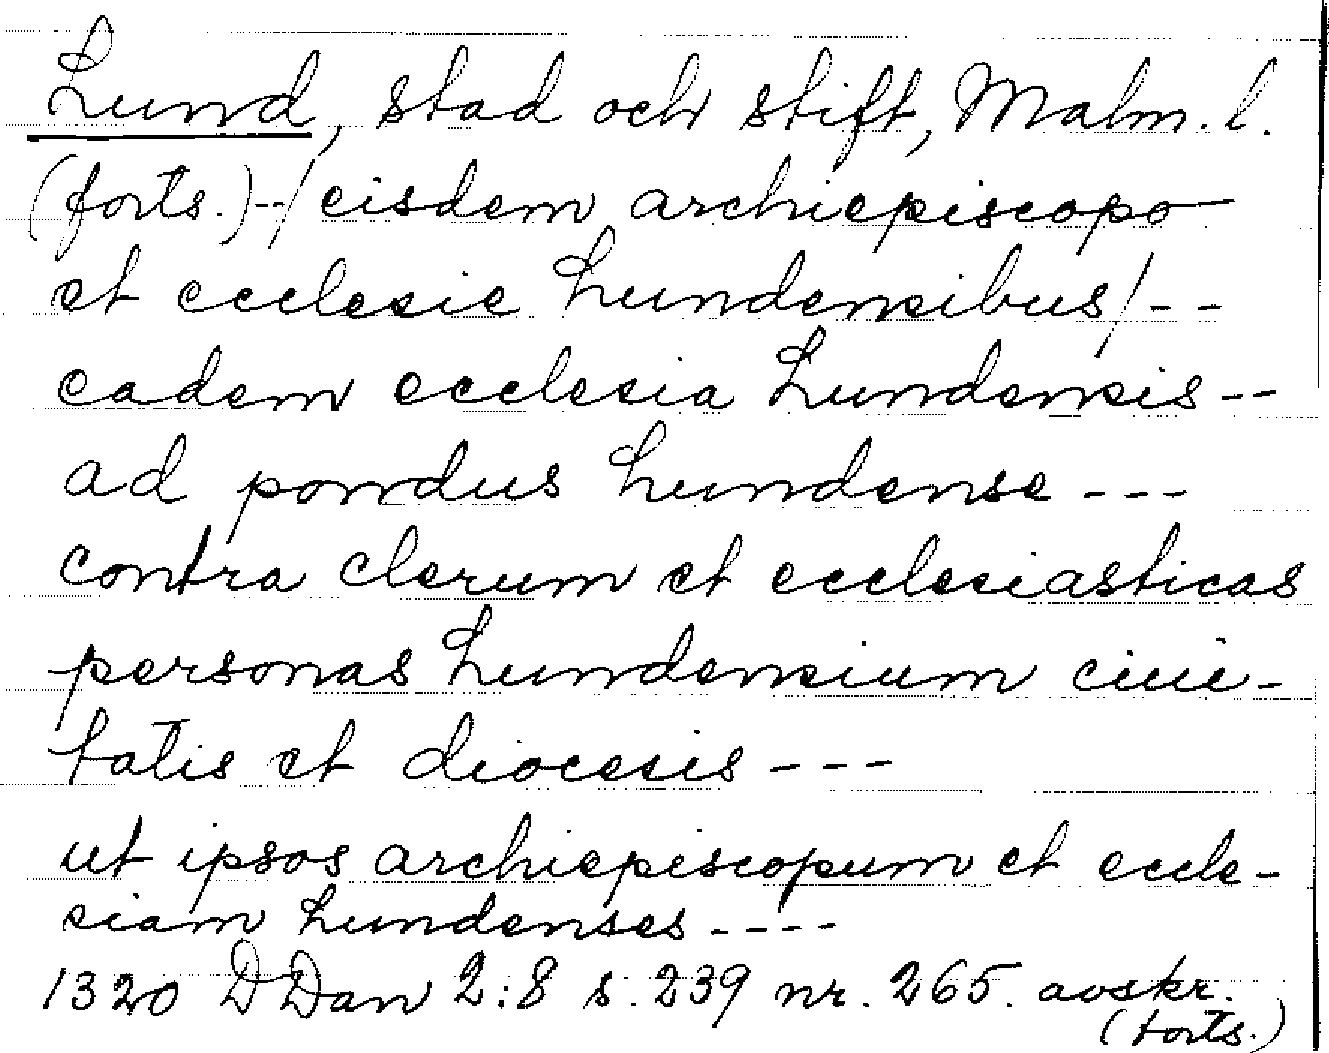 Lund, stad och stift, Malm. l.
(forts.) --/eisdem archiepiscopo
et ecclesie Lundensibus/--
eadem ecclesia Lundensis--
ad pondus Lundense ---
contra clerum et ecclesiasticas
personas Lundensium ciui-
tatis et diocesis ---
ut ipsos archiepiscopum et eccle-
siam Lundenses ----
1320 DDan 2:8 s. 239 nr. 265. avskr.
(forts.)